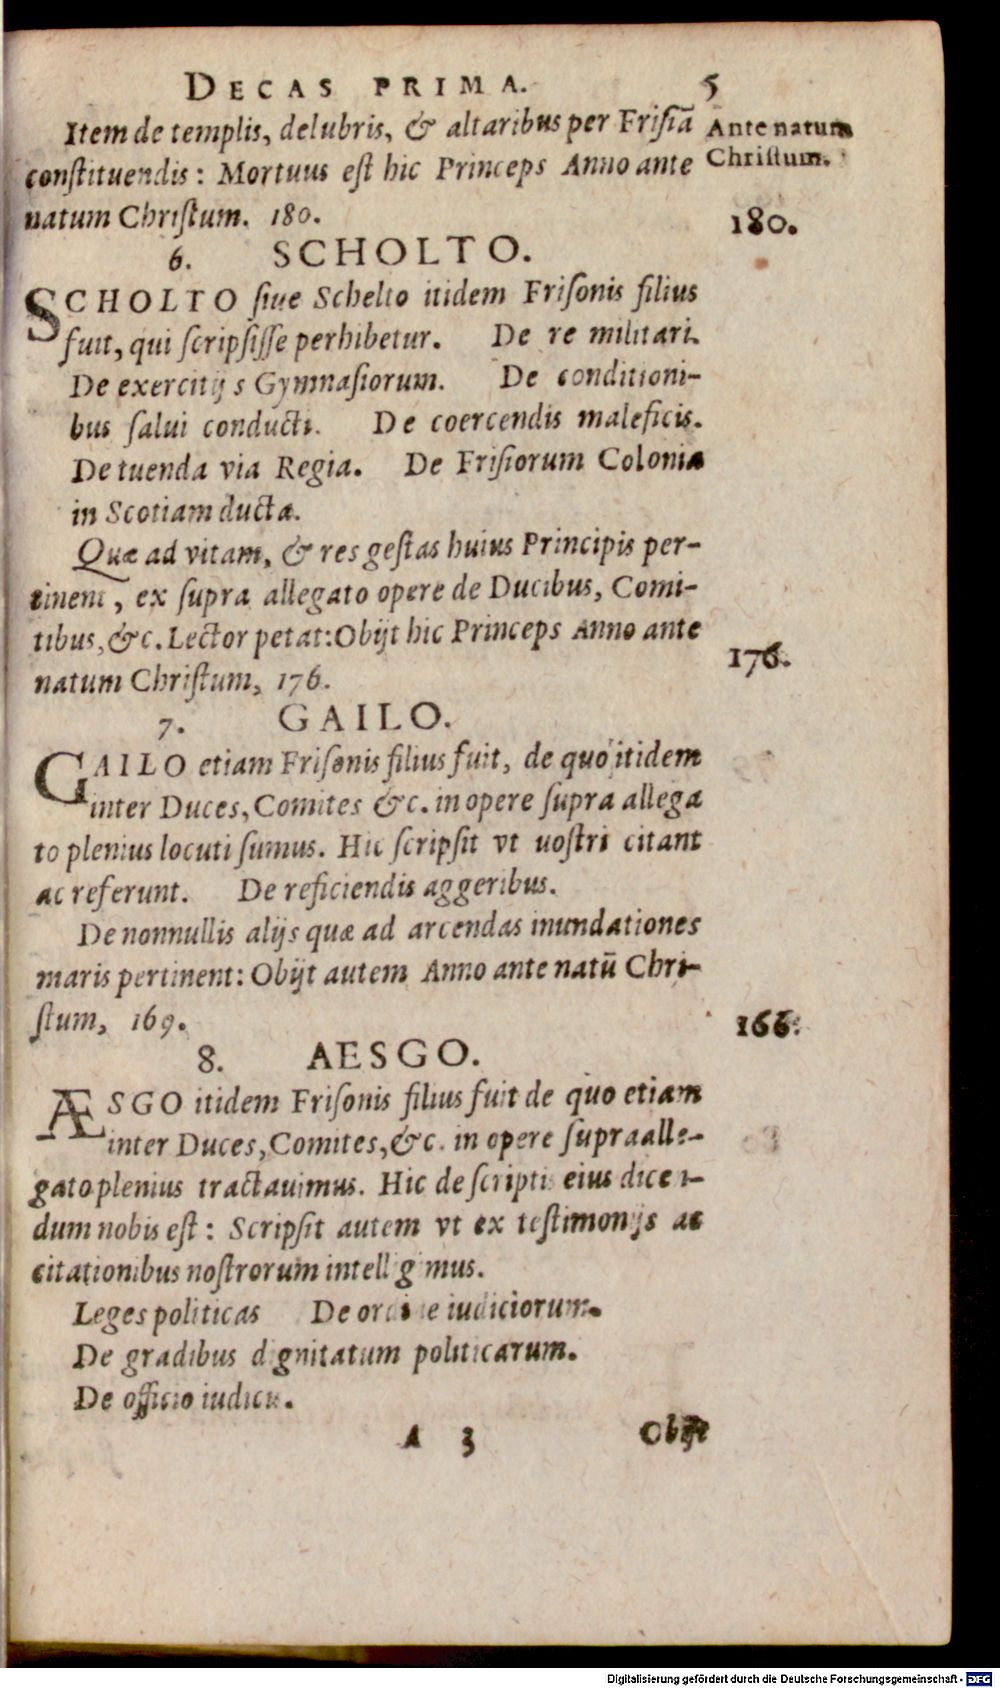 DECAS PRIMA. 5
Item de templis, delubris, & altaribus per Frisiã
constituendis: Mortuus est hic Princeps Anno ante
natum Christum. 180.
Ante natum
Christum.
180.
6. SCHOLTO.
SCHOLTO siue Schelto itidem Frisonis filius
fuit, qui scripsisse perhibetur. De re militari.
De exercitijs Gymnasiorum. De conditioni-
bus salui conducti. De coercendis maleficis.
De tuenda via Regia. De Frisiorum Colonia
in Scotiam ducta.
Quæ ad vitam, & res gestas huius Principis per-
tinent, ex supra allegato opere de Ducibus, Comi-
tibus, &c. Lector petat: Obijt hic Princeps Anno ante
natum Christum, 176.
176.
7. GAILO.
GAILO etiam Frisonis filius fuit, de quo itidem
inter Duces, Comites &c. in opere supra allega
to plenius locuti sumus. Hic scripsit vt uostri citant
ac referunt. De reficiendis aggeribus.
De nonnullis alijs quæ ad arcendas inundationes
maris pertinent: Obijt autem Anno ante natũ Chri-
stum, 169.
166.
8. AESGO.
ÆSGO itidem Frisonis filius fuit de quo etiam
inter Duces, Comites, &c. in opere supra alle-
gato plenius tractauimus. Hic de scriptis eius dicen-
dum nobis est: Scripsit autem vt ex testimonijs ac
citationibus nostrorum intelligimus.
Leges politicas De ordine iudiciorum.
De gradibus dignitatum politicarum.
De officio iudicis.
A 3 Obijt
Digitalisierung gefördert durch die Deutsche Forschungsgemeinschaft - DFG